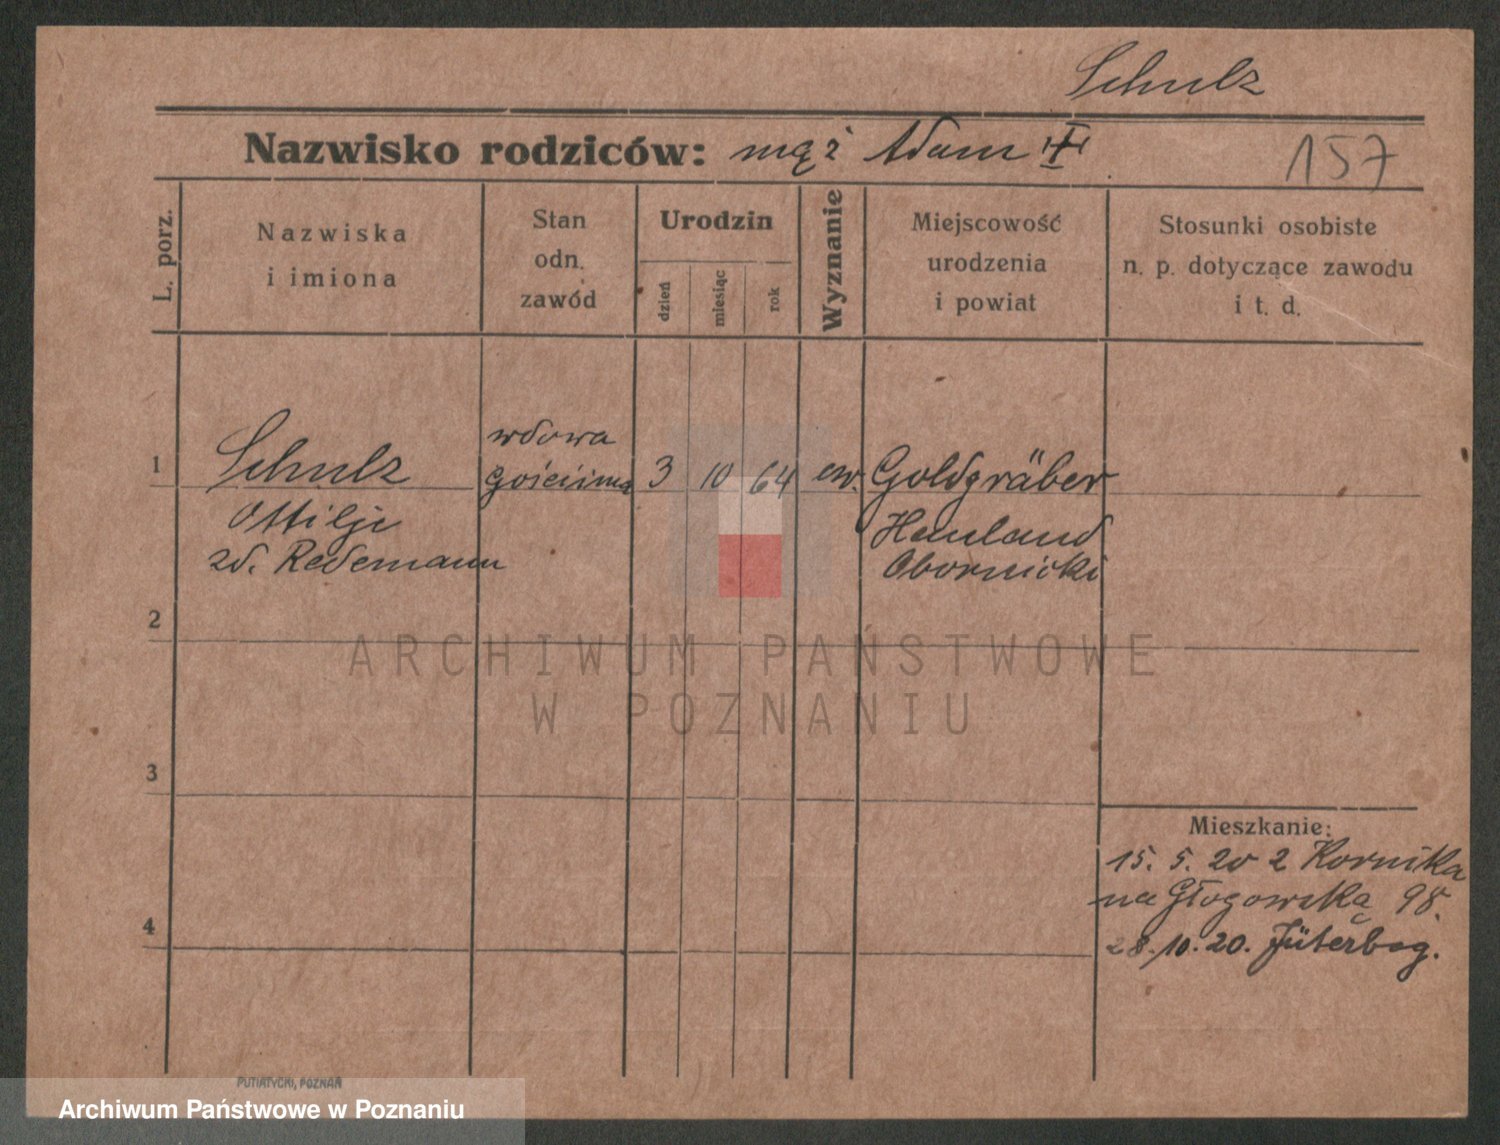 Schulz
Nazwisko rodziców: mąż Adam
157
L. porz.
Nazwiska
i imiona
Stan
odn.
zawód
Urodzin
dzień
miesiąc
rok
Wyznanie
Miejscowość
urodzenia
i powiat
Stosunki osobiste
n. p. dotyczące zawodu
i t. d.
1
Schulz
Ottilje
zd. Redemann
wdowa
3 10 64 ew. Goldgräber
Hauland
Obornicki
2
3
4
ARCHIWUM PAŃSTWOWE
W POZNANIU
Mieszkanie:
15. 5. 20 z Kornika
na Głogowską 98.
28. 10. 20. Jüterbog.
PUTIATYCKI, POZNAŃ
Archiwum Państwowe w Poznaniu